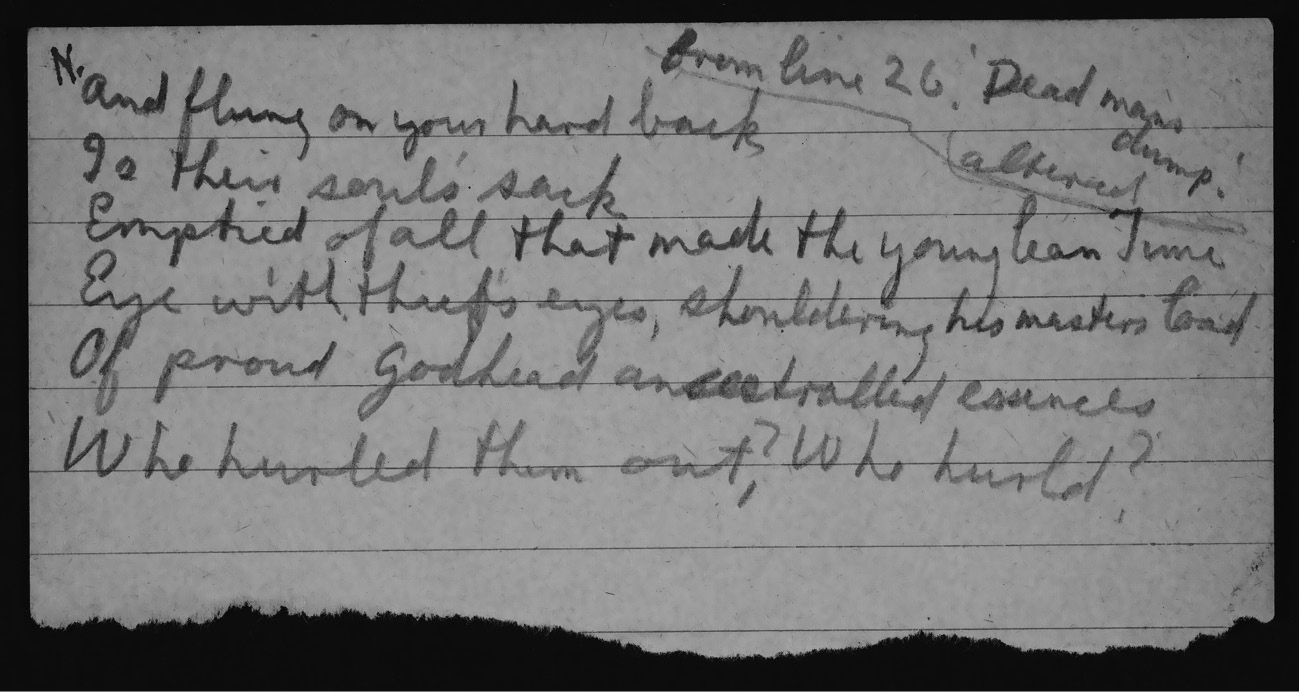 N.
from line 26. 'Dead mans
dump.'
(altered
And flung on your hard back
Is their souls' sack
Emptied of all that made the young lean Time
Eye with thief's eyes, shouldering his masters load
Of proud Godhead ancestralled essences
Who hurled them out,? Who hurld?